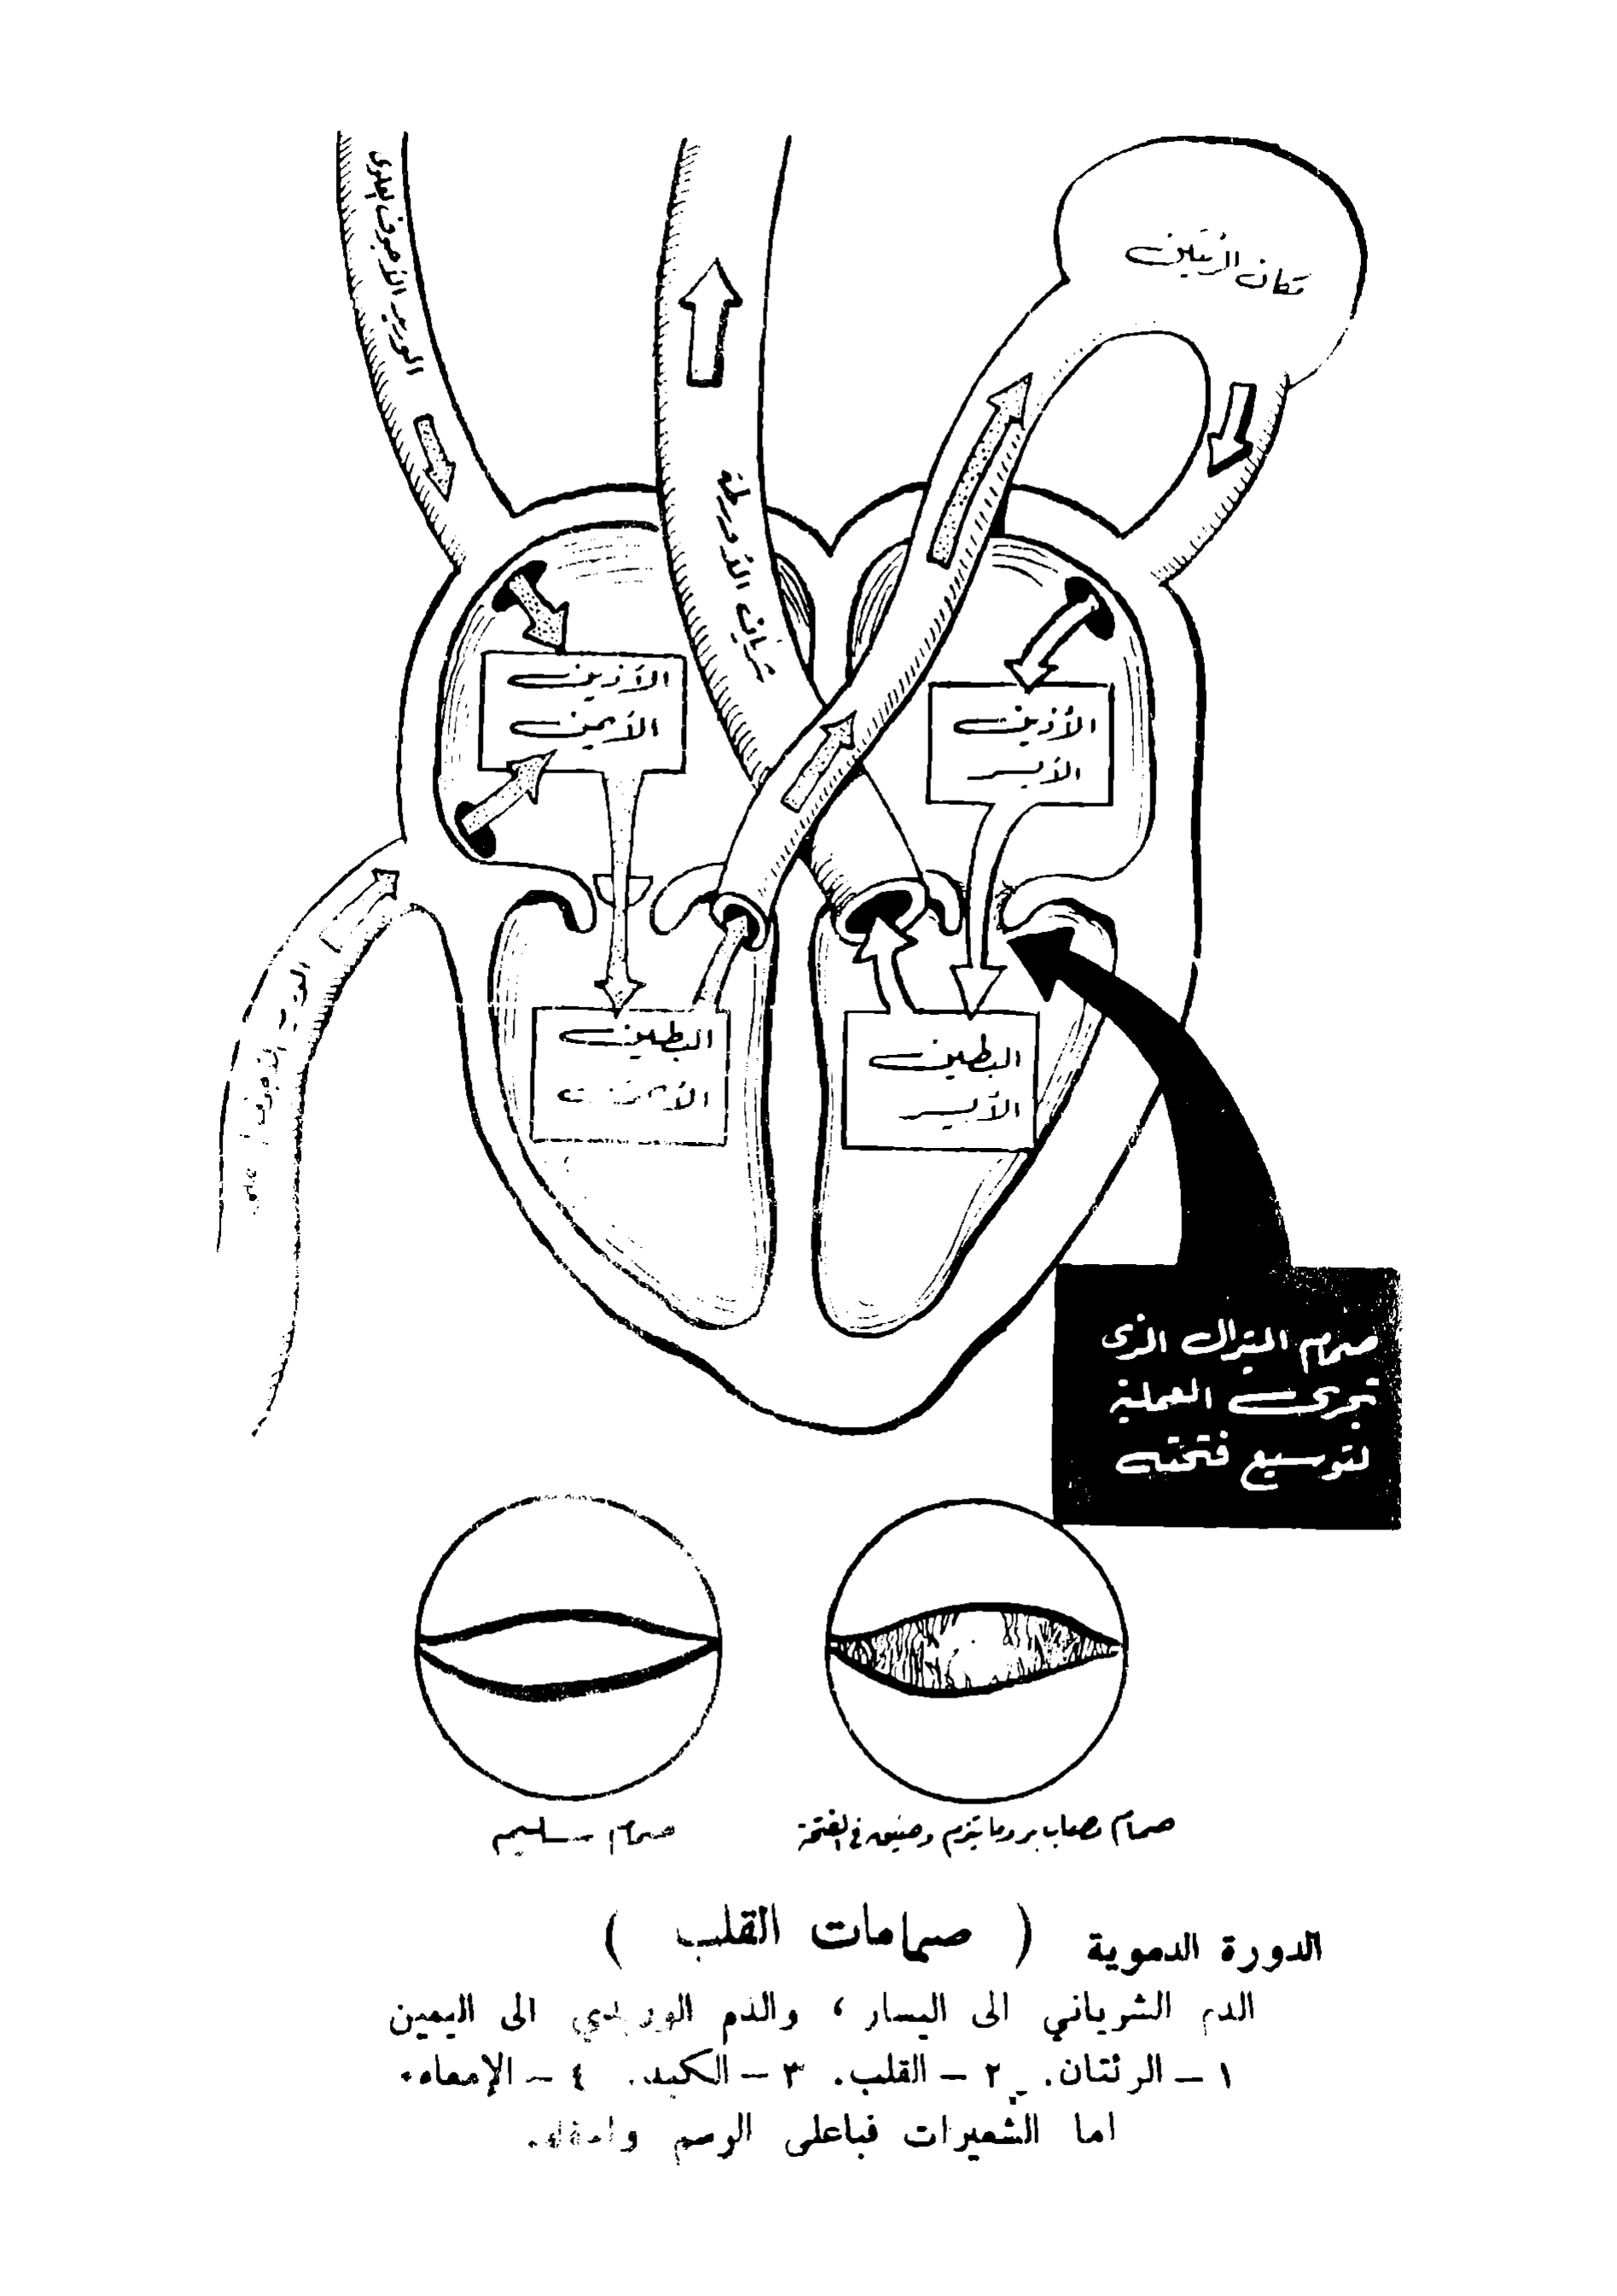 الوريد الأجوف العلوى
مكان الرئتين
شريان الأورطة
الأذين
الأيمن
الأذين
الأيسر
البطين
الأيمن
البطين
الأيسر
الوريد الأجوف
صمام الميترال الذى
تجرى العملية
لتوسيع فتحته
صمام سليم
صمام مصاب بروماتيزم وضيق فى الفتحة
الدورة الدموية ( صمامات القلب )
الدم الشرياني الى اليسار ، والدم الوريدي الى اليمين
١ – الرئتان. ٢ – القلب. ٣ – الكبد. ٤ – الإمعاء.
اما الشعيرات فباعلى الرسم واسفله.